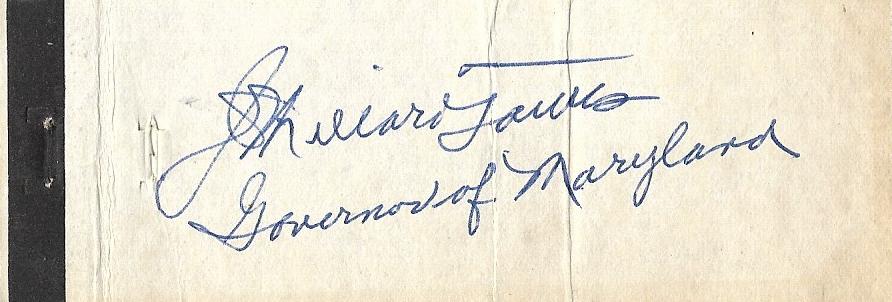 J Millard Tawes
Governor of Maryland